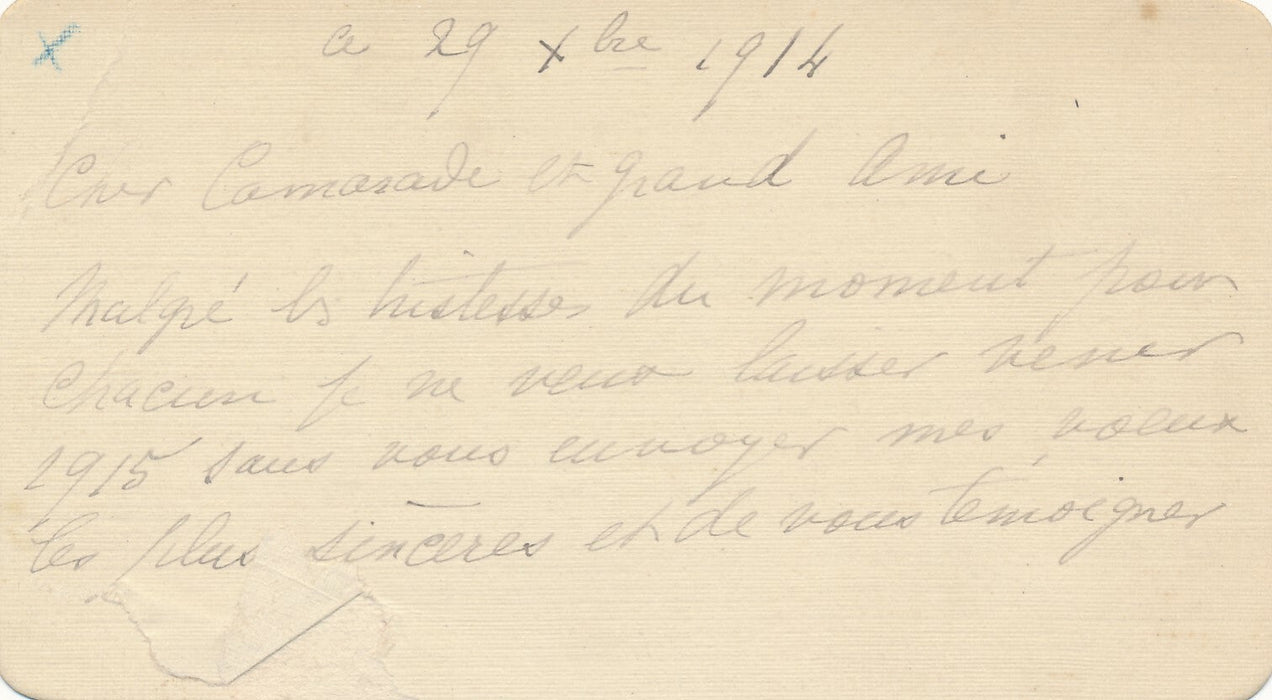 ce 29 Xbre 1914
Cher Camarade et grand Ami
Malgré les tristesses du moment pour
Chacun je ne veux laisser venir
1915 sans vous envoyer mes vœux
les plus sincères et de vous témoigner